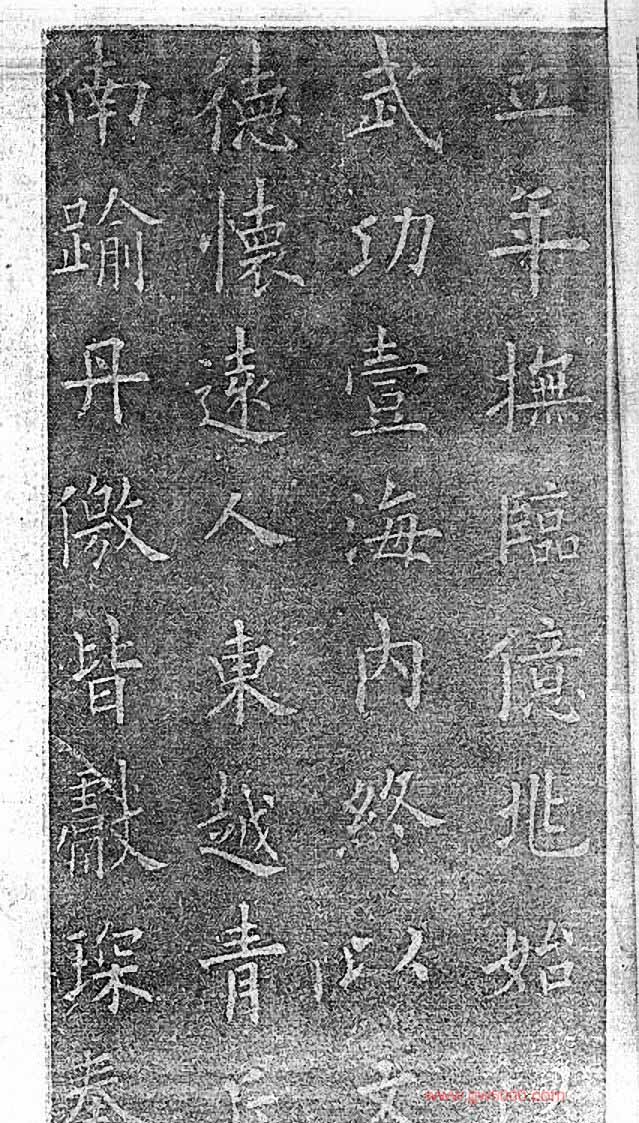 立年撫臨億兆始
武功壹海內終以文
德懷遠人東越青
南踰丹徼皆獻琛奉
www.gx8000.com